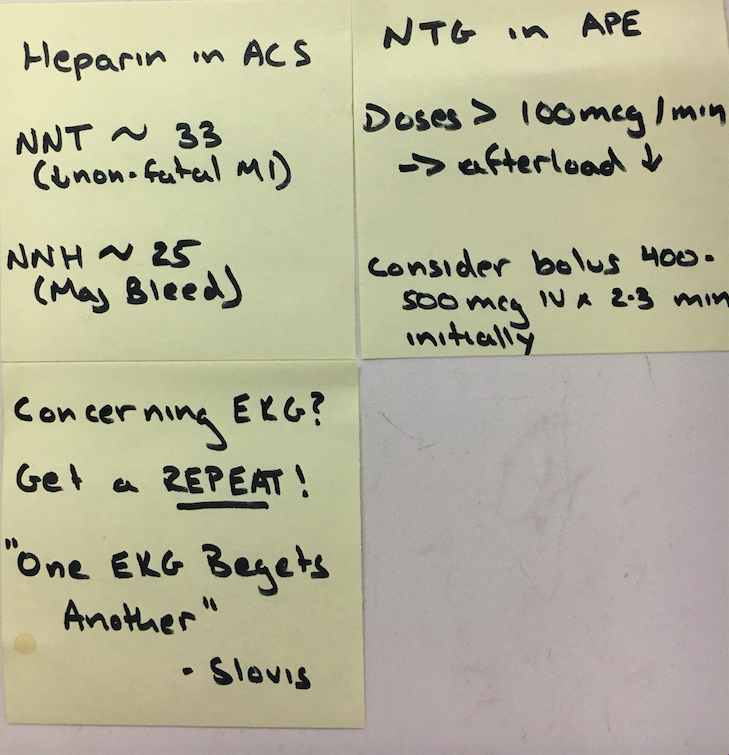 Heparin in ACS
NNT ~ 33
(↓non-fatal MI)
NNH ~ 25
(Maj Bleed)
NTG in APE
Doses > 100mcg/min
-> afterload ↓
Consider bolus 400-
500mcg IV x 2-3 min
initially
Concerning EKG?
Get a REPEAT!
"One EKG Begets
Another"
- Slovis